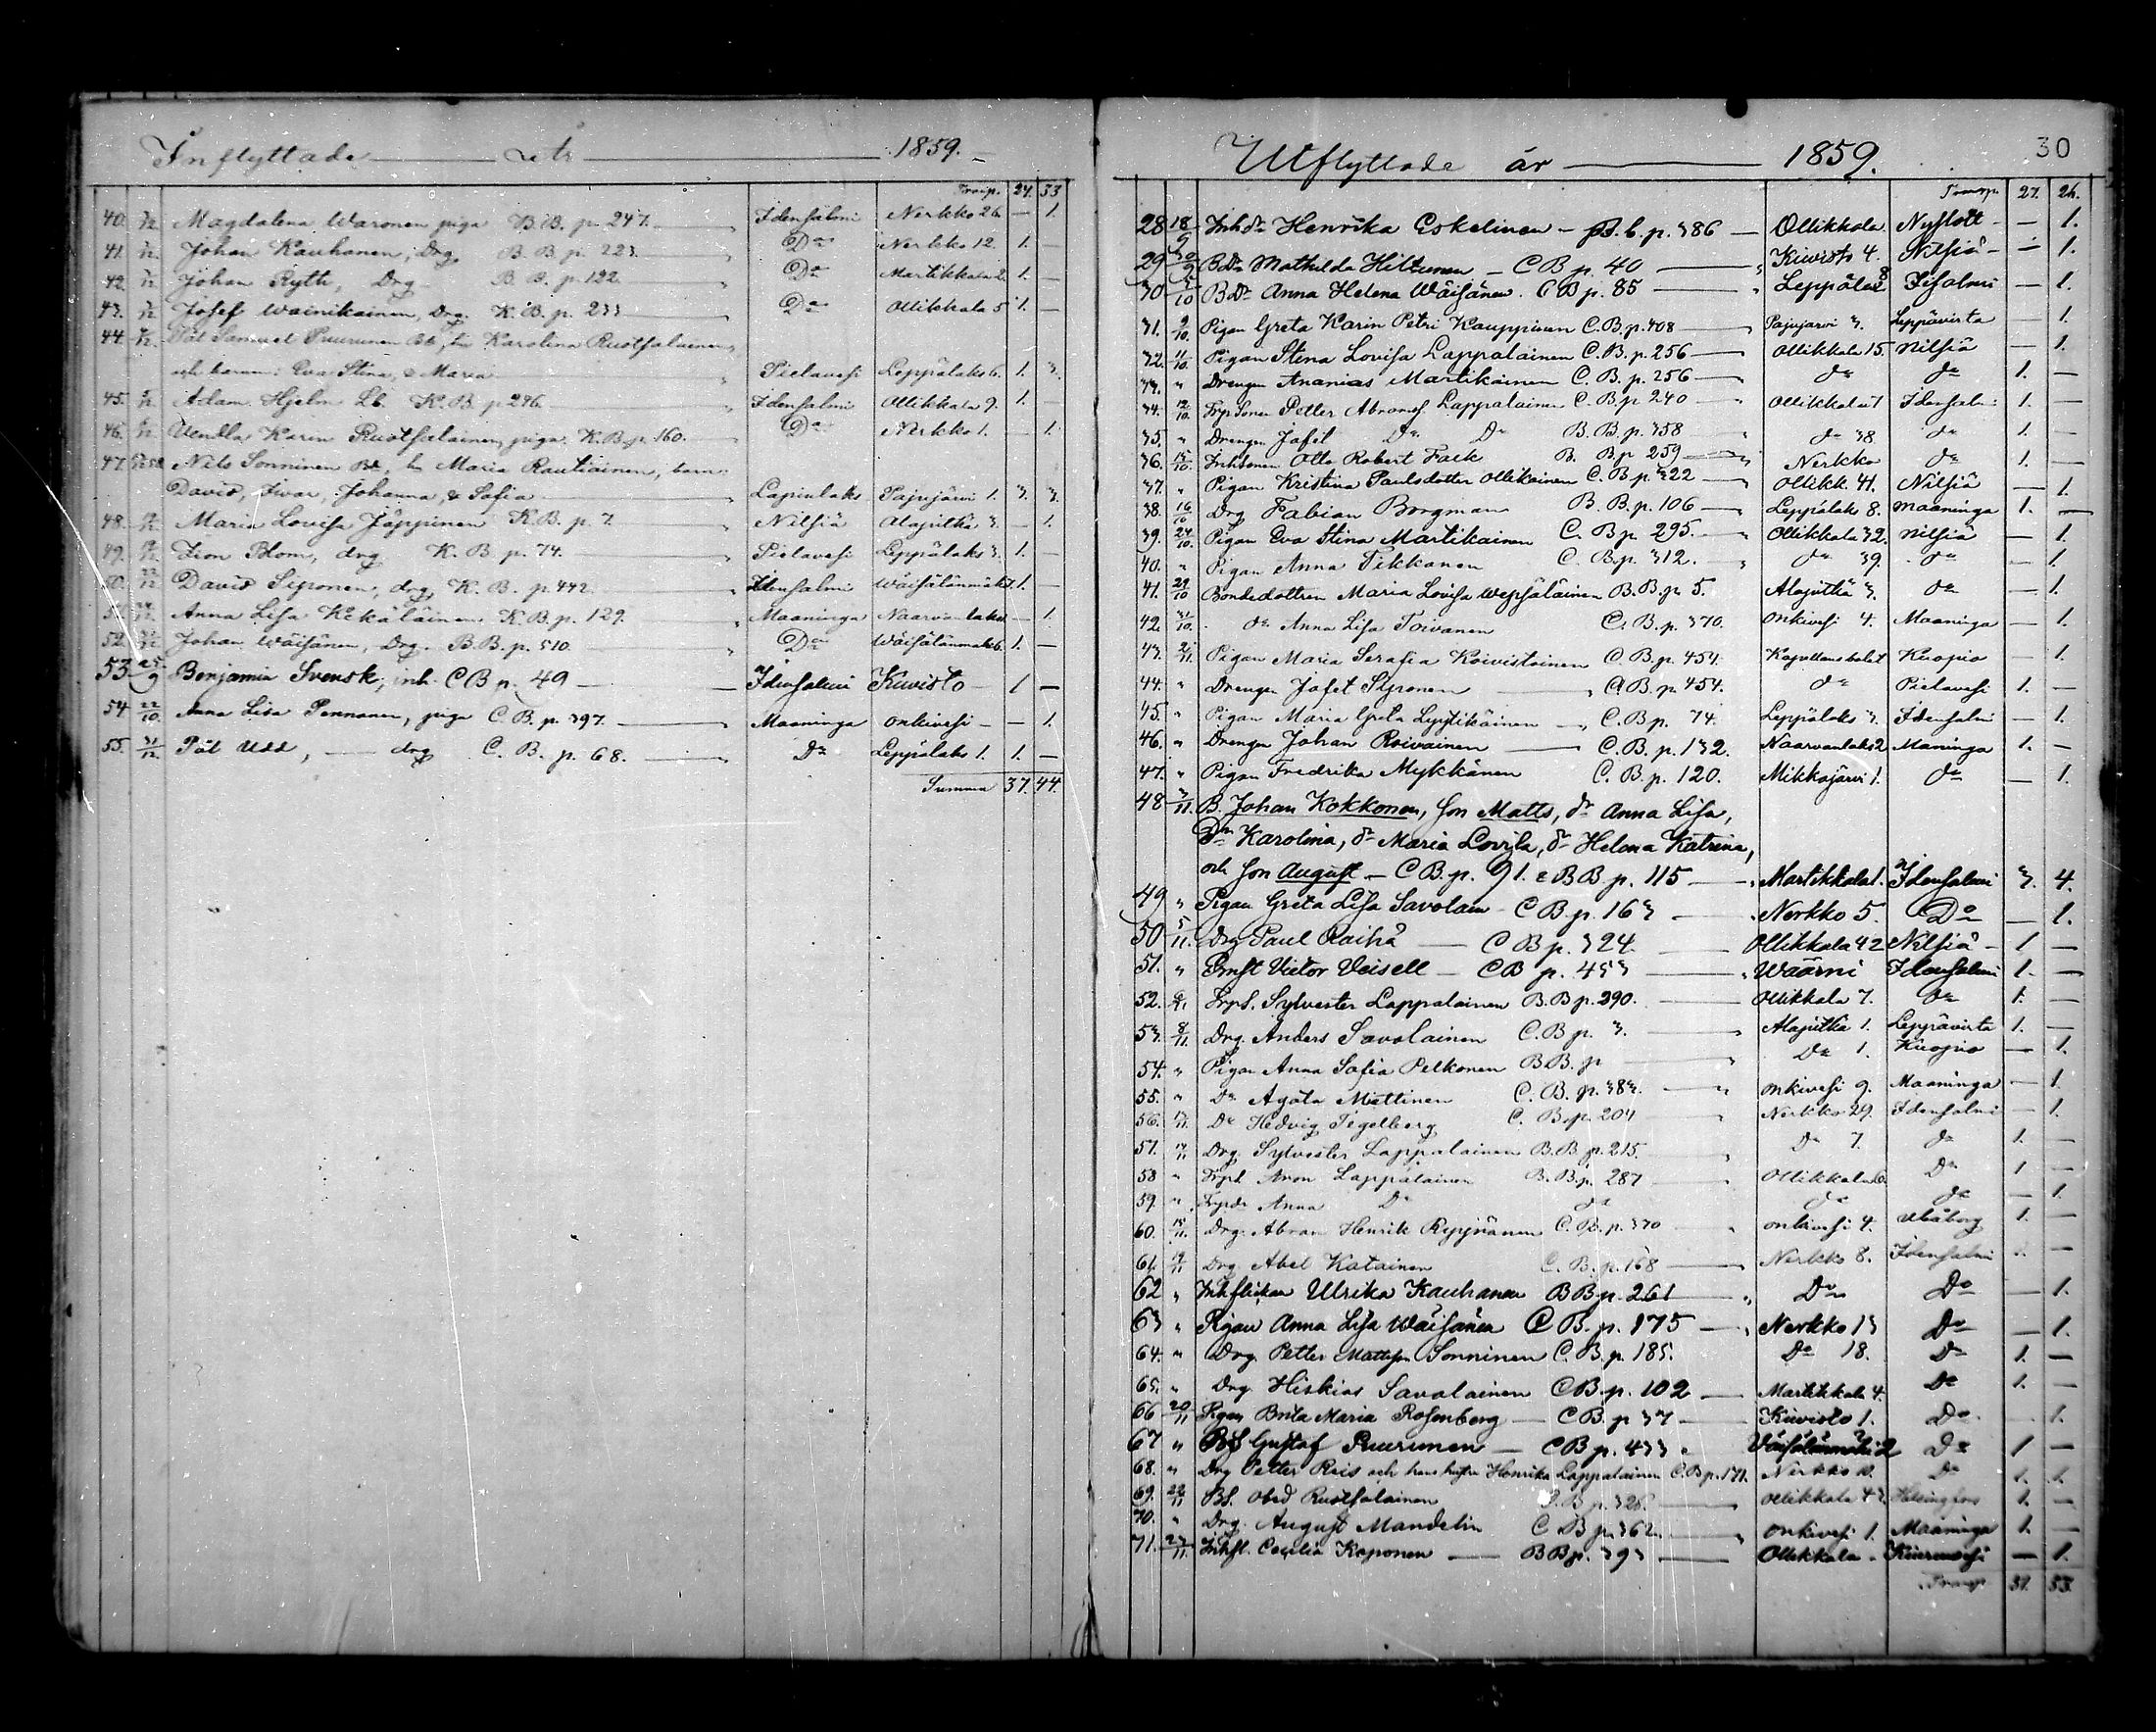 Inflyttade år 1859.
Transp. 24. 33
40. Magdalena Waronen piga B.B. p. 247. Idensalmi Nerkko 26 — 1.
41. Johan Kauhanen, Drg. B.B. p. 223. Do Nerkko 12. 1. —
42. Johan Ryth, Drg B.B. p. 122 Do Martikkala 2. 1. —
43. Josef Wainikainen, Drg. K.B. p. 233 Do Ollikkala 5. 1. —
44. Pål Samuel Puurunen Karolina Ruotsalainen,
och barnen: Eva Stina, & Maria Pielavesi Leppälaks 6. 1. 3.
45. Adam Hjelm Lb. K.B. p 296. Idensalmi Ollikkala 9. 1. —
46. Vendla Karin Ruotsalainen, piga K.B. p. 160. Do Nerkko 1. — 1.
47. Nils Sonninen Maria Rautiainen, barn
David, Ivar, Johanna, & Sofia Lapinlaks Pajujärvi 1. 3. 3.
48. Maria Lovisa Jäppinen K.B. p. 7. Nilsiä Alapitkä 3. — 1.
49. Zion Blom, drg K.B p. 74. Pielavesi Leppälaks 3. 1. —
50. David Siponen, drg K.B. p. 442. Idensalmi Wäisälänmäki 7. 1. —
51. Anna Lisa Kekäläinen K.B. p. 129. Maaninga Naarvanlaks — 1.
52. Johan Wäisänen, Drg. B.B. p. 510. Do Wäisälänmäki 6. 1. —
53 25/9 Benjamin Svensk, inh. CB p. 49 Idensalmi Kuvisto 1 —
54 22/10. Anna Lisa Pennanen, piga C.B. p. 397. Maaninga Onkivesi — — 1.
55. 31/12. Pål Udd, drg C.B. p. 68. Do Leppälaks 1. 1. —
Summa 37. 44.
Utflyttade år 1859. 30
Transp. 27. 26.
28 18/9 Inhdr Henrika Eskelinen — B.b. p. 386 Ollikkala Nyslott — 1.
29 30/9 BDr Mathilda Hiltunen — CB p. 40 Kuvisto 4. Nilsiä — 1.
30 3/10 BDr Anna Helena Wäisänen. CB p. 85 Leppälax 8 Idensalmi — 1.
31. 9/10. Pigan Greta Karin Petri Kauppinen C.B. p. 408 Pajujarvi 3. Leppävirta — 1.
32. 11/10. Pigan Stina Lovisa Lappalainen C.B. p. 256 Ollikkala 15. Nilsiä — 1.
33. " Drengen Ananias Martikainen C.B. p. 256 do do 1. —
34. 12/10. Petter Abramss. Lappalainen C.B. p 240 Ollikkala 1 Idensalmi 1. —
35. " Drengen Jafet Do Do B.B. p. 358 do 38. do 1. —
36. 15/10. Inhsonen Otto Robert Falk B.B. p 259 Nerkko do 1. —
37. " Pigan Kristina Paulsdotter Ollikainen C.B. p 322 Ollikk. 41. Nilsiä — 1.
38. 16/10 Drg Fabian Borgman B.B. p. 106 Leppälaks 8. Maaninga 1. —
39. 24/10. Pigan Eva Stina Martikainen C.B. p 295. Ollikkala 32. Nilsiä — 1.
40. " Pigan Anna Tikkanen C.B. p. 312. do 39. do — 1.
41. 29/10 Bondedottren Maria Lovisa Wepsäläinen B.B. p. 5. Alapitkä 3. do — 1.
42. 31/10. do Anna Lisa Toivanen C.B. p. 370. Onkivesi 4. Maaninga — 1.
43. 2/11. Pigan Maria Serafia Koivistoinen C.B. p. 454. Kapellansbolet Kuopio — 1.
44. " Drengen Jafet Siponen C.B. p. 454. do Pielavesi 1. —
45. " Pigan Maria Greta Lyytikäinen C.B. p. 74. Leppälaks 3. Idensalmi — 1.
46. " Drengen Johan Roivainen C.B. p. 132. Naarvanlaks 2 Maninga 1. —
47. " Pigan Fredrika Mykkänen C.B. p. 120. Mikkajärvi 1. do — 1.
48 3/11. B. Johan Kokkonen, son Matts, dr Anna Lisa,
Dr Karolina, dr Maria Lovisa, dr Helena Katrina,
och son August — CB. p. 91. & BB p. 115 Martikkala 1. Idensalmi 3. 4.
49 " Pigan Greta Lisa Savolain CB p. 163 Nerkko 5. Do — 1.
50 5/11. Drg Paul Raihä CB p. 324. Ollikkala 42 Nilsiä — 1 —
51. " Ernst Victor Veisell CB p. 453 Waarni Idensalmi 1. —
52. 6/11 Sylvester Lappalainen B.B p. 290. Ollikkala 7. do 1. —
53. 8/11. Drg. Anders Savolainen C.B p. 3. Alapitkä 1. Leppävirta 1. —
54. " Pigan Anna Sofia Pelkonen BB. p Do 1. Kuopio — 1.
55. " Do Agata Miettinen C.B. p. 383. Onkivesi 9. Maaninga — 1.
56. Do Hedvig Tegelberg C.B. p. 204 Nerkko 29. Idensalmi — 1.
57. Drg. Sylvester Lappalainen B.B p. 215. Do 7. do 1. —
58 " Aron Lappalainen B.B p. 287 Ollikkala 6. Do 1 —
59. " Anna Do do do do — 1.
60. 15/11. Drg. Abram Henrik Ryynänen C.B. p. 370 Onkivesi 4. Uleåborg 1. —
61. Drg Abel Katainen C.B. p. 168 Nerkko 8. Idensalmi 1. —
62 " Inhflickan Ulrika Kauhanen BB p. 261 Do Do — 1.
63 " Pigan Anna Lisa Wäisänen CB. p. 175 Nerkko 13 Do — 1.
64. " Drg. Petter Mattss Sonninen C.B. p. 185. Do 18. Do 1. —
65. " Drg. Hiskias Savolainen CB p. 102 Martikkala 4. Do 1. —
66 20/11 Pigan Brita Maria Rosenberg CB. p 37 Kuvisto 1. Do 1.
67 " BS Gustaf Puurunen CB p. 433 Väisälänmäki 2 Do 1 —
68. " Drg Petter Reis och hans hustru Henrika Lappalainen C.B p. 171. Nerkko Do 1. 1.
69. 22/11 BS. Obed Ruotsalainen C.B p. 326. Ollikkala 43 Helsingfors 1. —
70. " Drg. August Mandelin C.B p. 362. Onkivesi 1. Maaninga 1. —
71. 23/11. Inhfl. Cecilia Koponen BB p. 393 Ollikkala Kiuruvesi — 1.
Transp 51. 53.